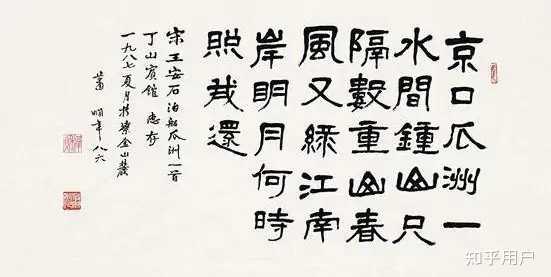 京口瓜洲一
水間鍾山只
隔數重山春
風又綠江南
岸明月何時
照我還
宋王安石泊船瓜洲一首
丁山賓館 應存
一九八七夏月於紫金山麓
蕭嫻年八六
知乎用户